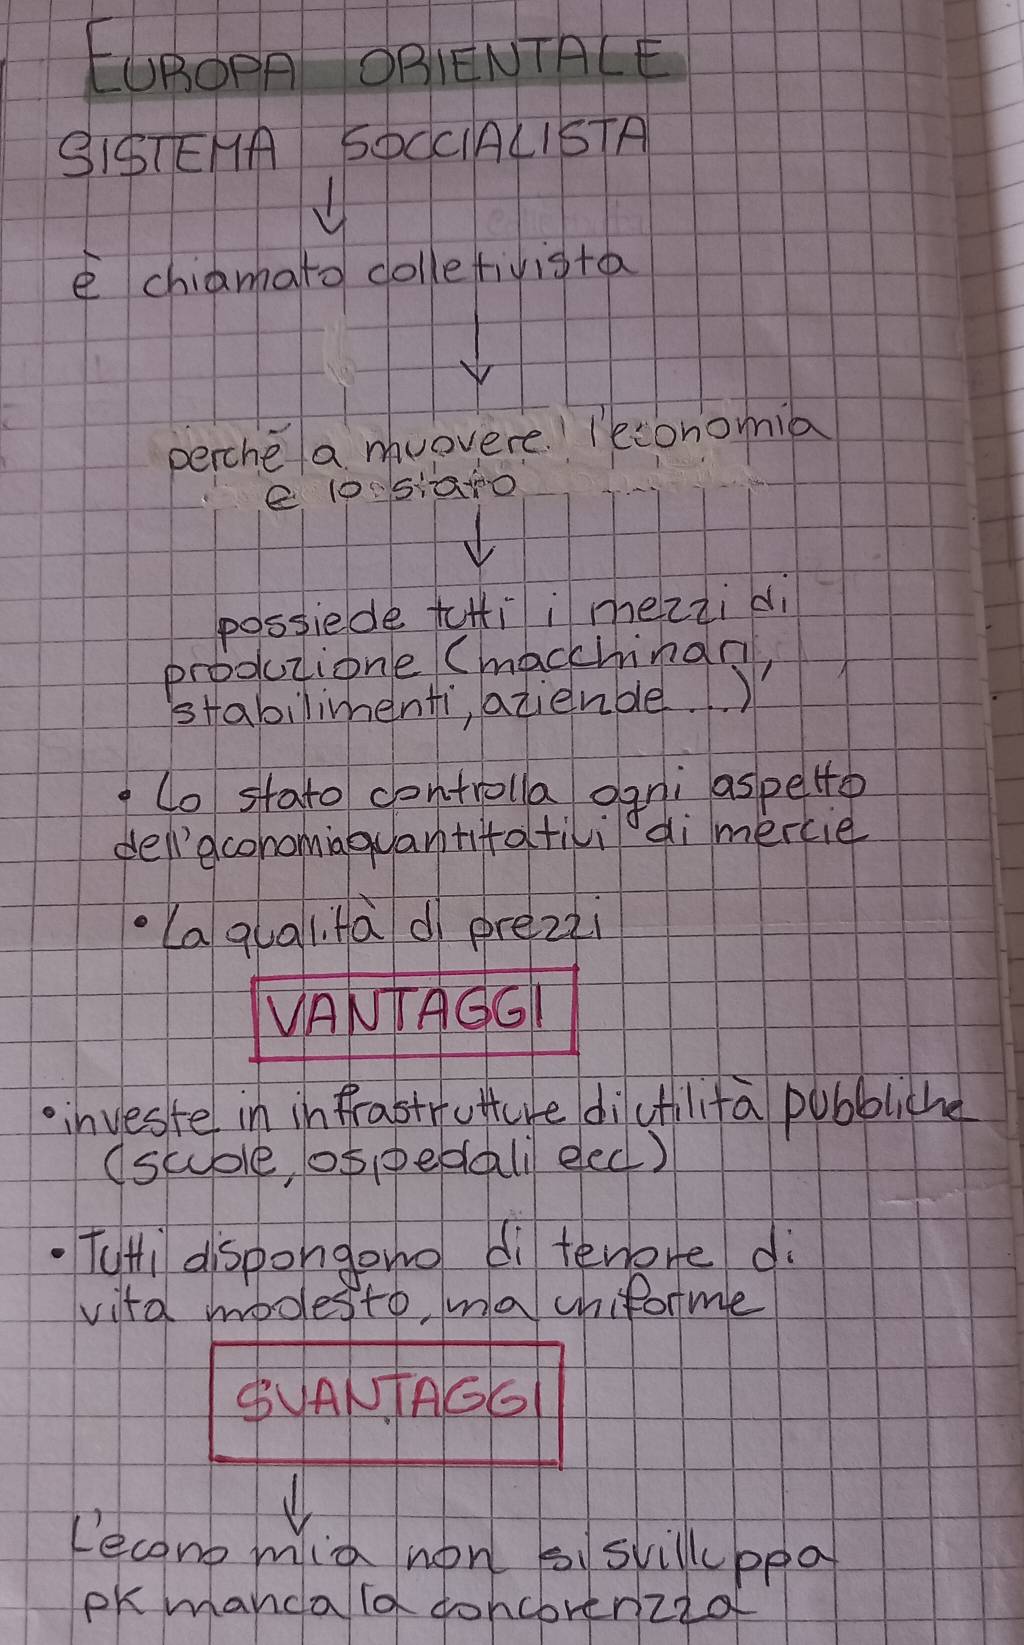 EUROPA ORIENTALE
SISTEMA SOCCIALISTA
è chiamato colletivista
perchè a muovere l'economia
e lo stato
possiede tutti i mezzi di
produzione (macchinari,
stabilimenti, aziende...)
• Lo stato controlla ogni aspetto
dell'aconomiaquantitativi di mercie
• La qualità di prezzi
VANTAGGI
• investe in infrastrutture di utilità pubbliche
(scuole, ospedali ecc)
• Tutti dispongono di tenore di
vita modesto, ma uniforme
SVANTAGGI
L'economia non si svilluppa
pk manca la concorenzza